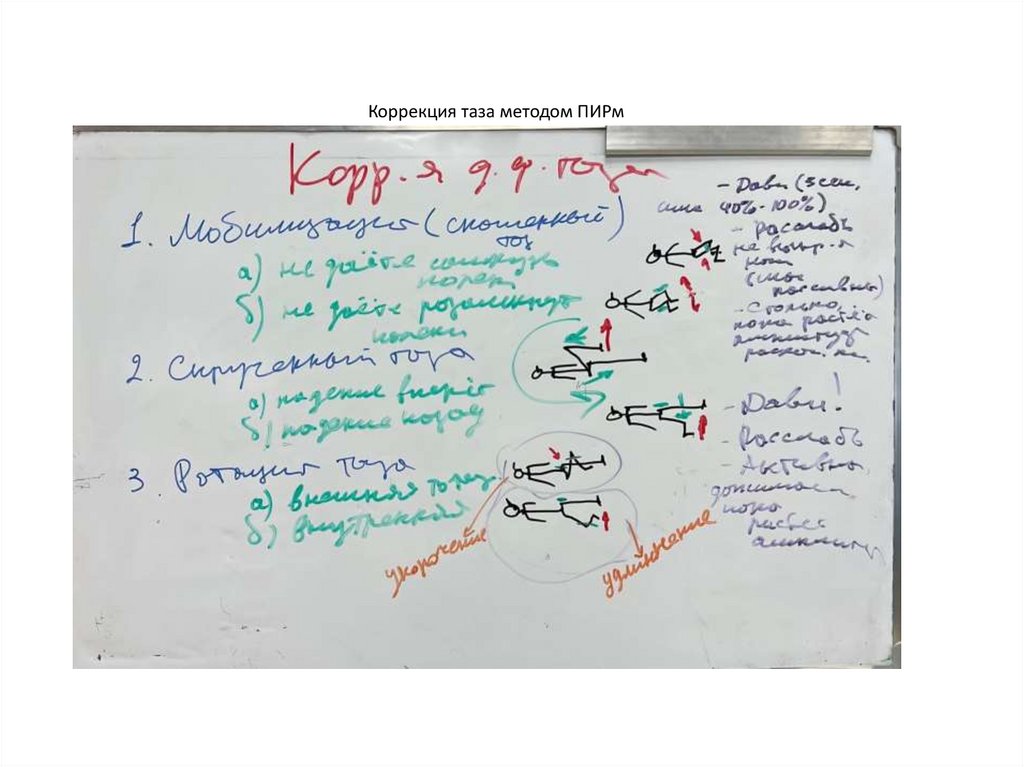 Коррекция таза методом ПИРм
Корр-я д.ф. таза
1. Мобилизация (скошенный)
таз
а) не даёте сомкнуть
колени
б) не даёте разомкнуть
колени
2. Скрученный таз
а) падение вперёд
б) падение назад
3. Ротация таза
а) внешняя
б) внутренняя
укорочение
удлиннение
- Дави (5 сек,
сила 40%-100%)
- Расслабь
не
ноги
(мы
пассивны)
- Столько,
пока растёт
амплитуда
- Дави!
- Расслабь
- Активно
дожимаем
пока
растёт
амплитуда